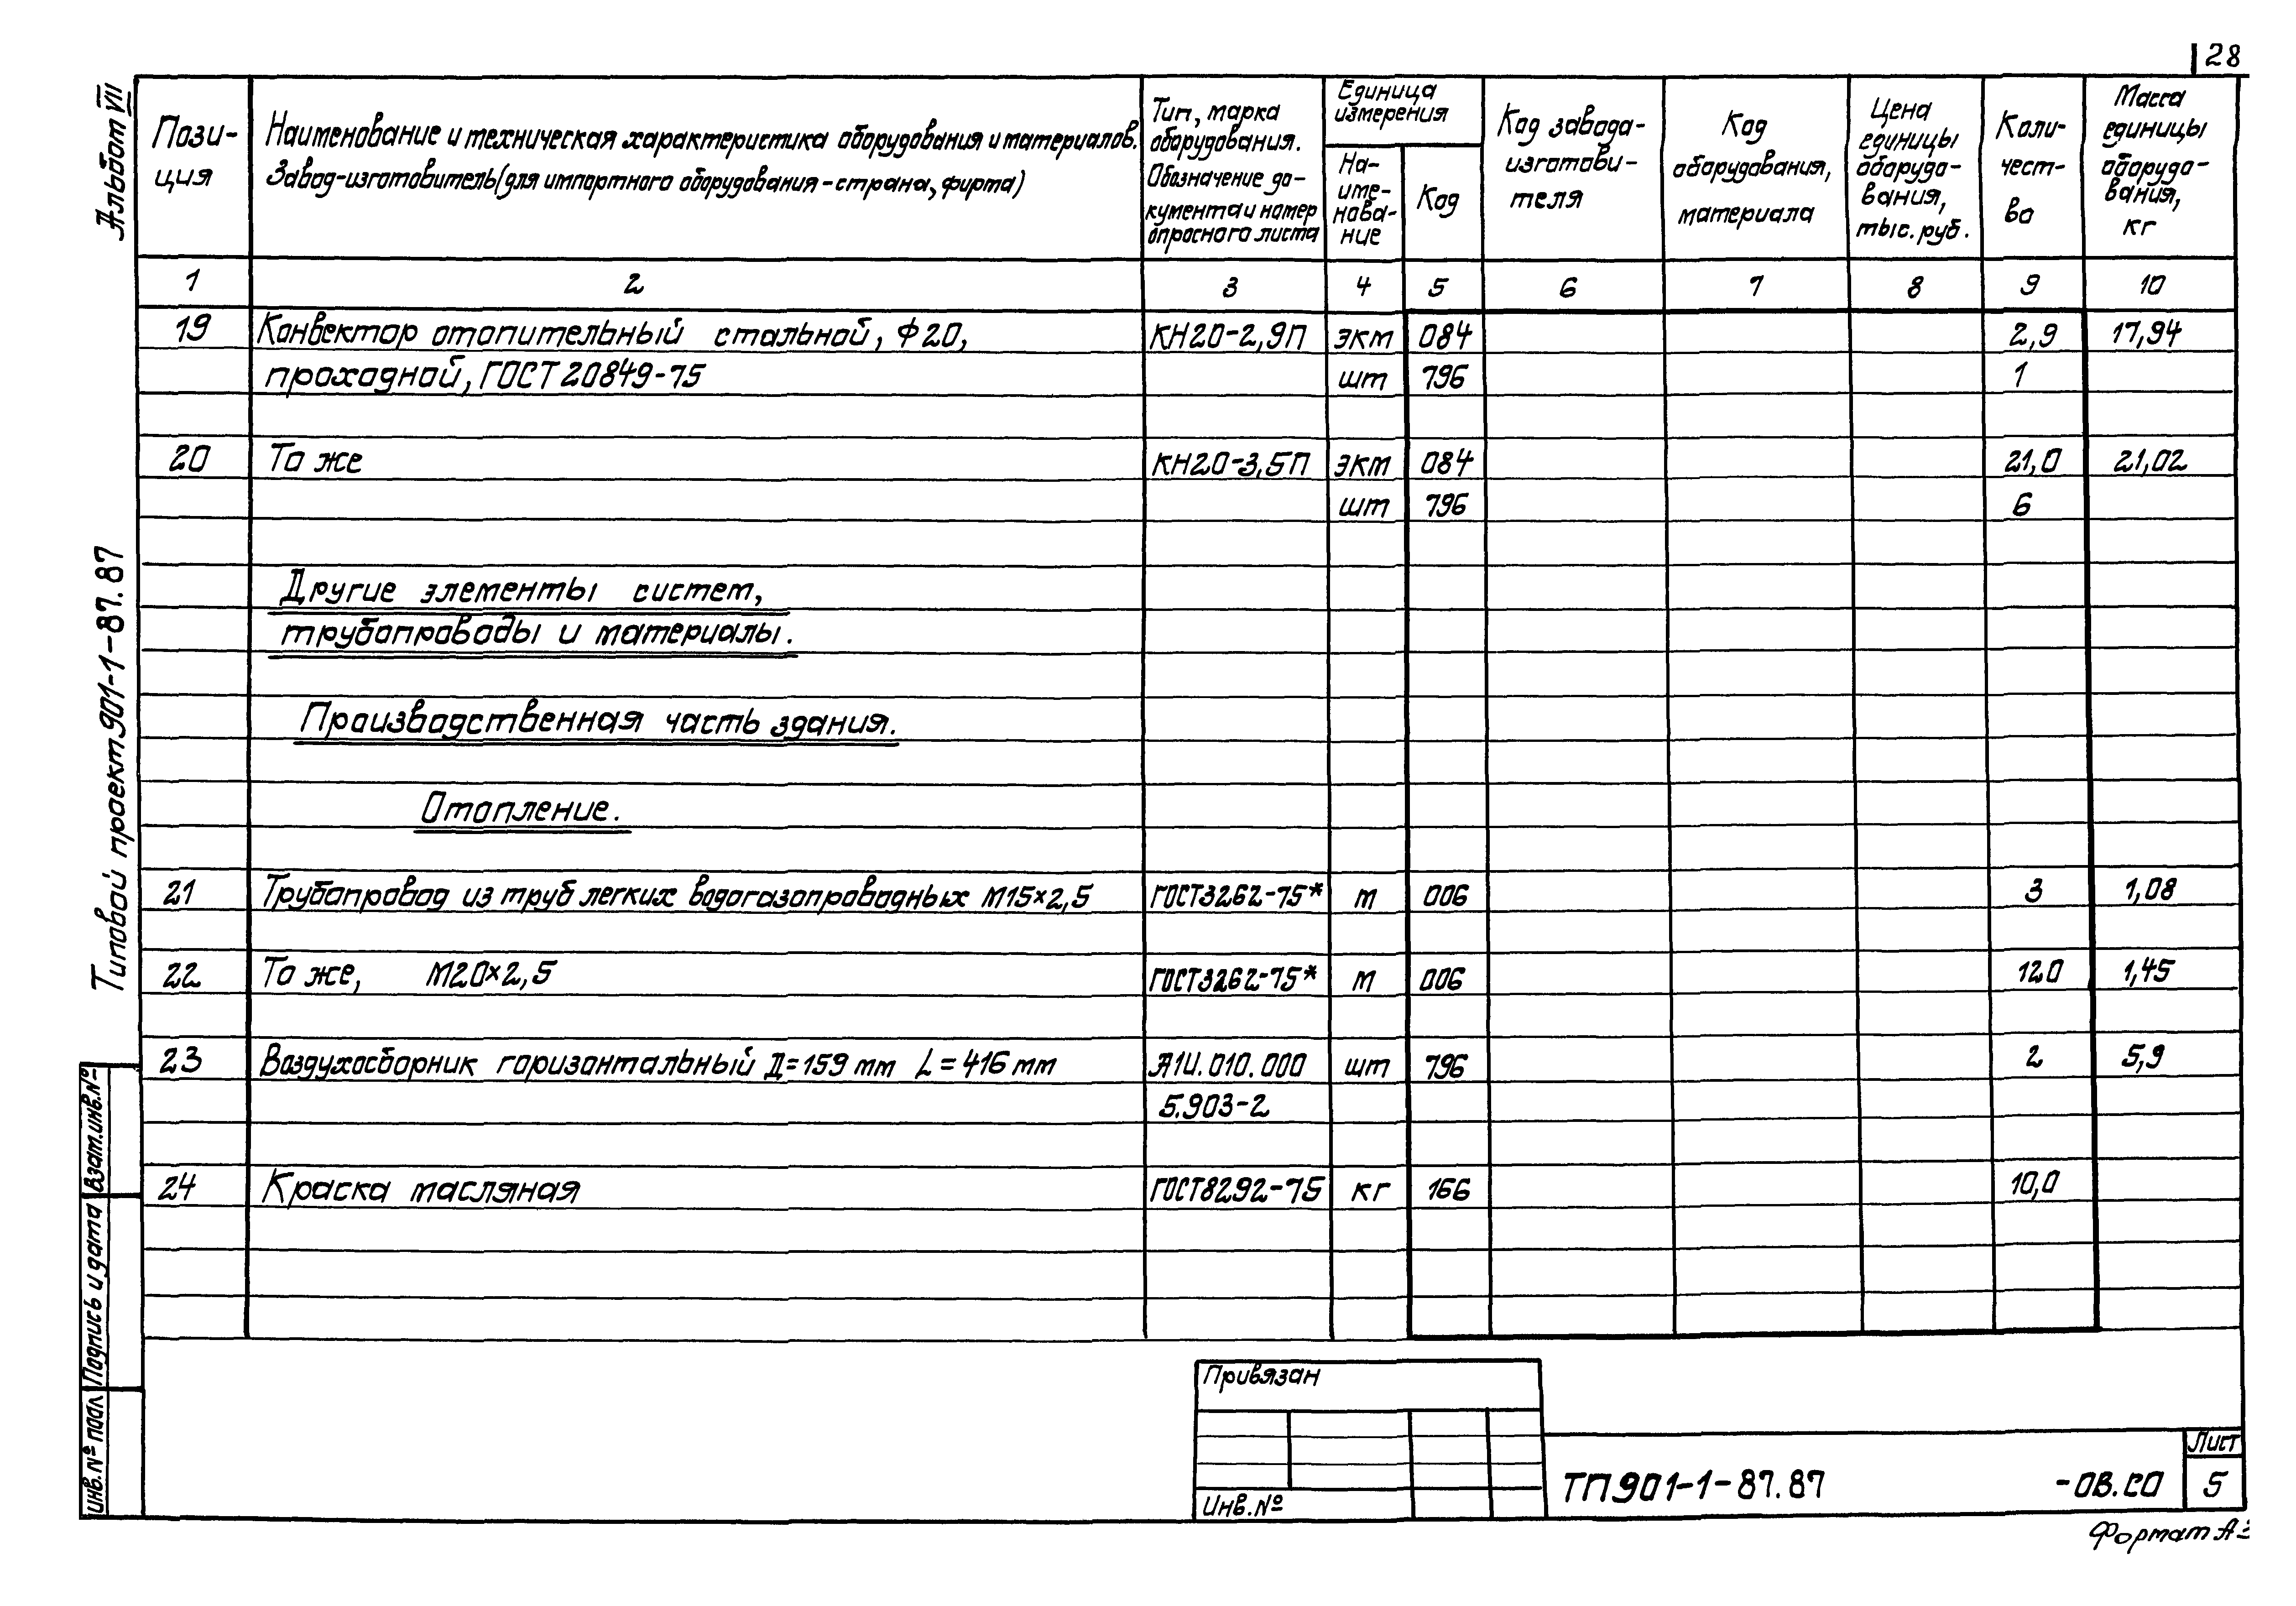 28
Альбом VII
Типовой проект 901-1-87.87
Пози-
ция
Наименование и техническая характеристика оборудования и материалов.
Завод-изготовитель (для импортного оборудования - страна, фирма)
Тип, марка
оборудования.
Обозначение до-
кумента и номер
опросного листа
Единица
измерения
На-
име-
нова-
ние
Код
Код завода-
изготови-
теля
Код
оборудования,
материала
Цена
единицы
оборудо-
вания,
тыс. руб.
Коли-
чест-
во
Масса
единицы
оборудо-
вания,
кг
1 2 3 4 5 6 7 8 9 10
19 Конвектор отопительный стальной, Ф20, КН20-2,9П экм 084 2,9 17,94
проходной, ГОСТ 20849-75 шт 796 1
20 То же КН20-3,5П экм 084 21,0 21,02
шт 796 6
Другие элементы систем,
трубопроводы и материалы.
Производственная часть здания.
Отопление.
21 Трубопровод из труб легких водогазопроводных М15×2,5 ГОСТ3262-75* м 006 3 1,08
22 То же, М20×2,5 ГОСТ3262-75* м 006 120 1,45
23 Воздухосборник горизонтальный Д=159мм L=416мм А1И.010.000 шт 796 2 5,9
5.903-2
24 Краска масляная ГОСТ8292-75 кг 166 10,0
Взам.инв.№
Подпись и дата
Инв.№ подл
Привязан
Инв.№
ТП 901-1-87.87 -ОВ.СО
Лист
5
Формат А3